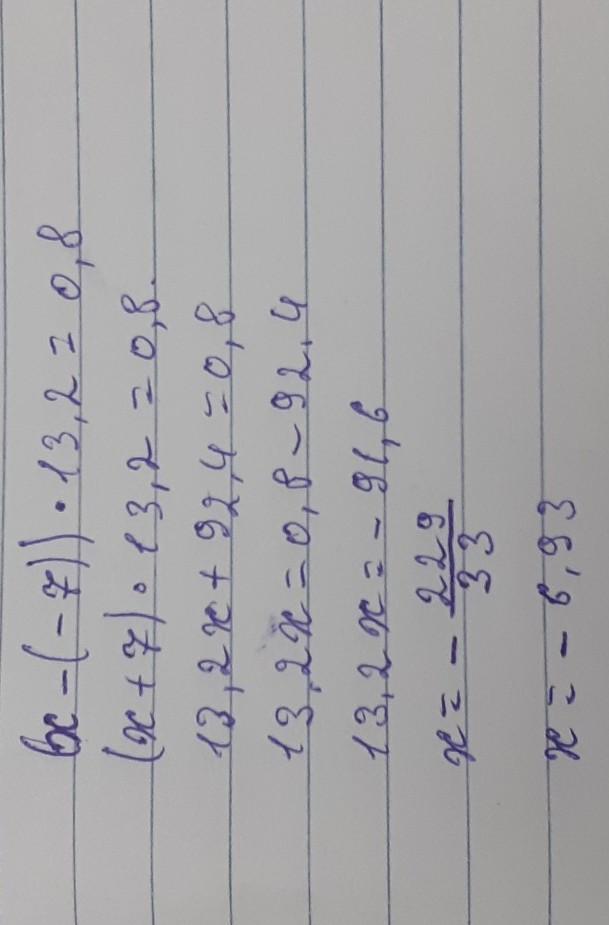 (x-(-7))·13,2=0,8
(x+7)·13,2=0,8.
13,2x+92,4=0,8
13,2x=0,8-92,4
13,2x=-91,6
x=-229/33
x=-6,93